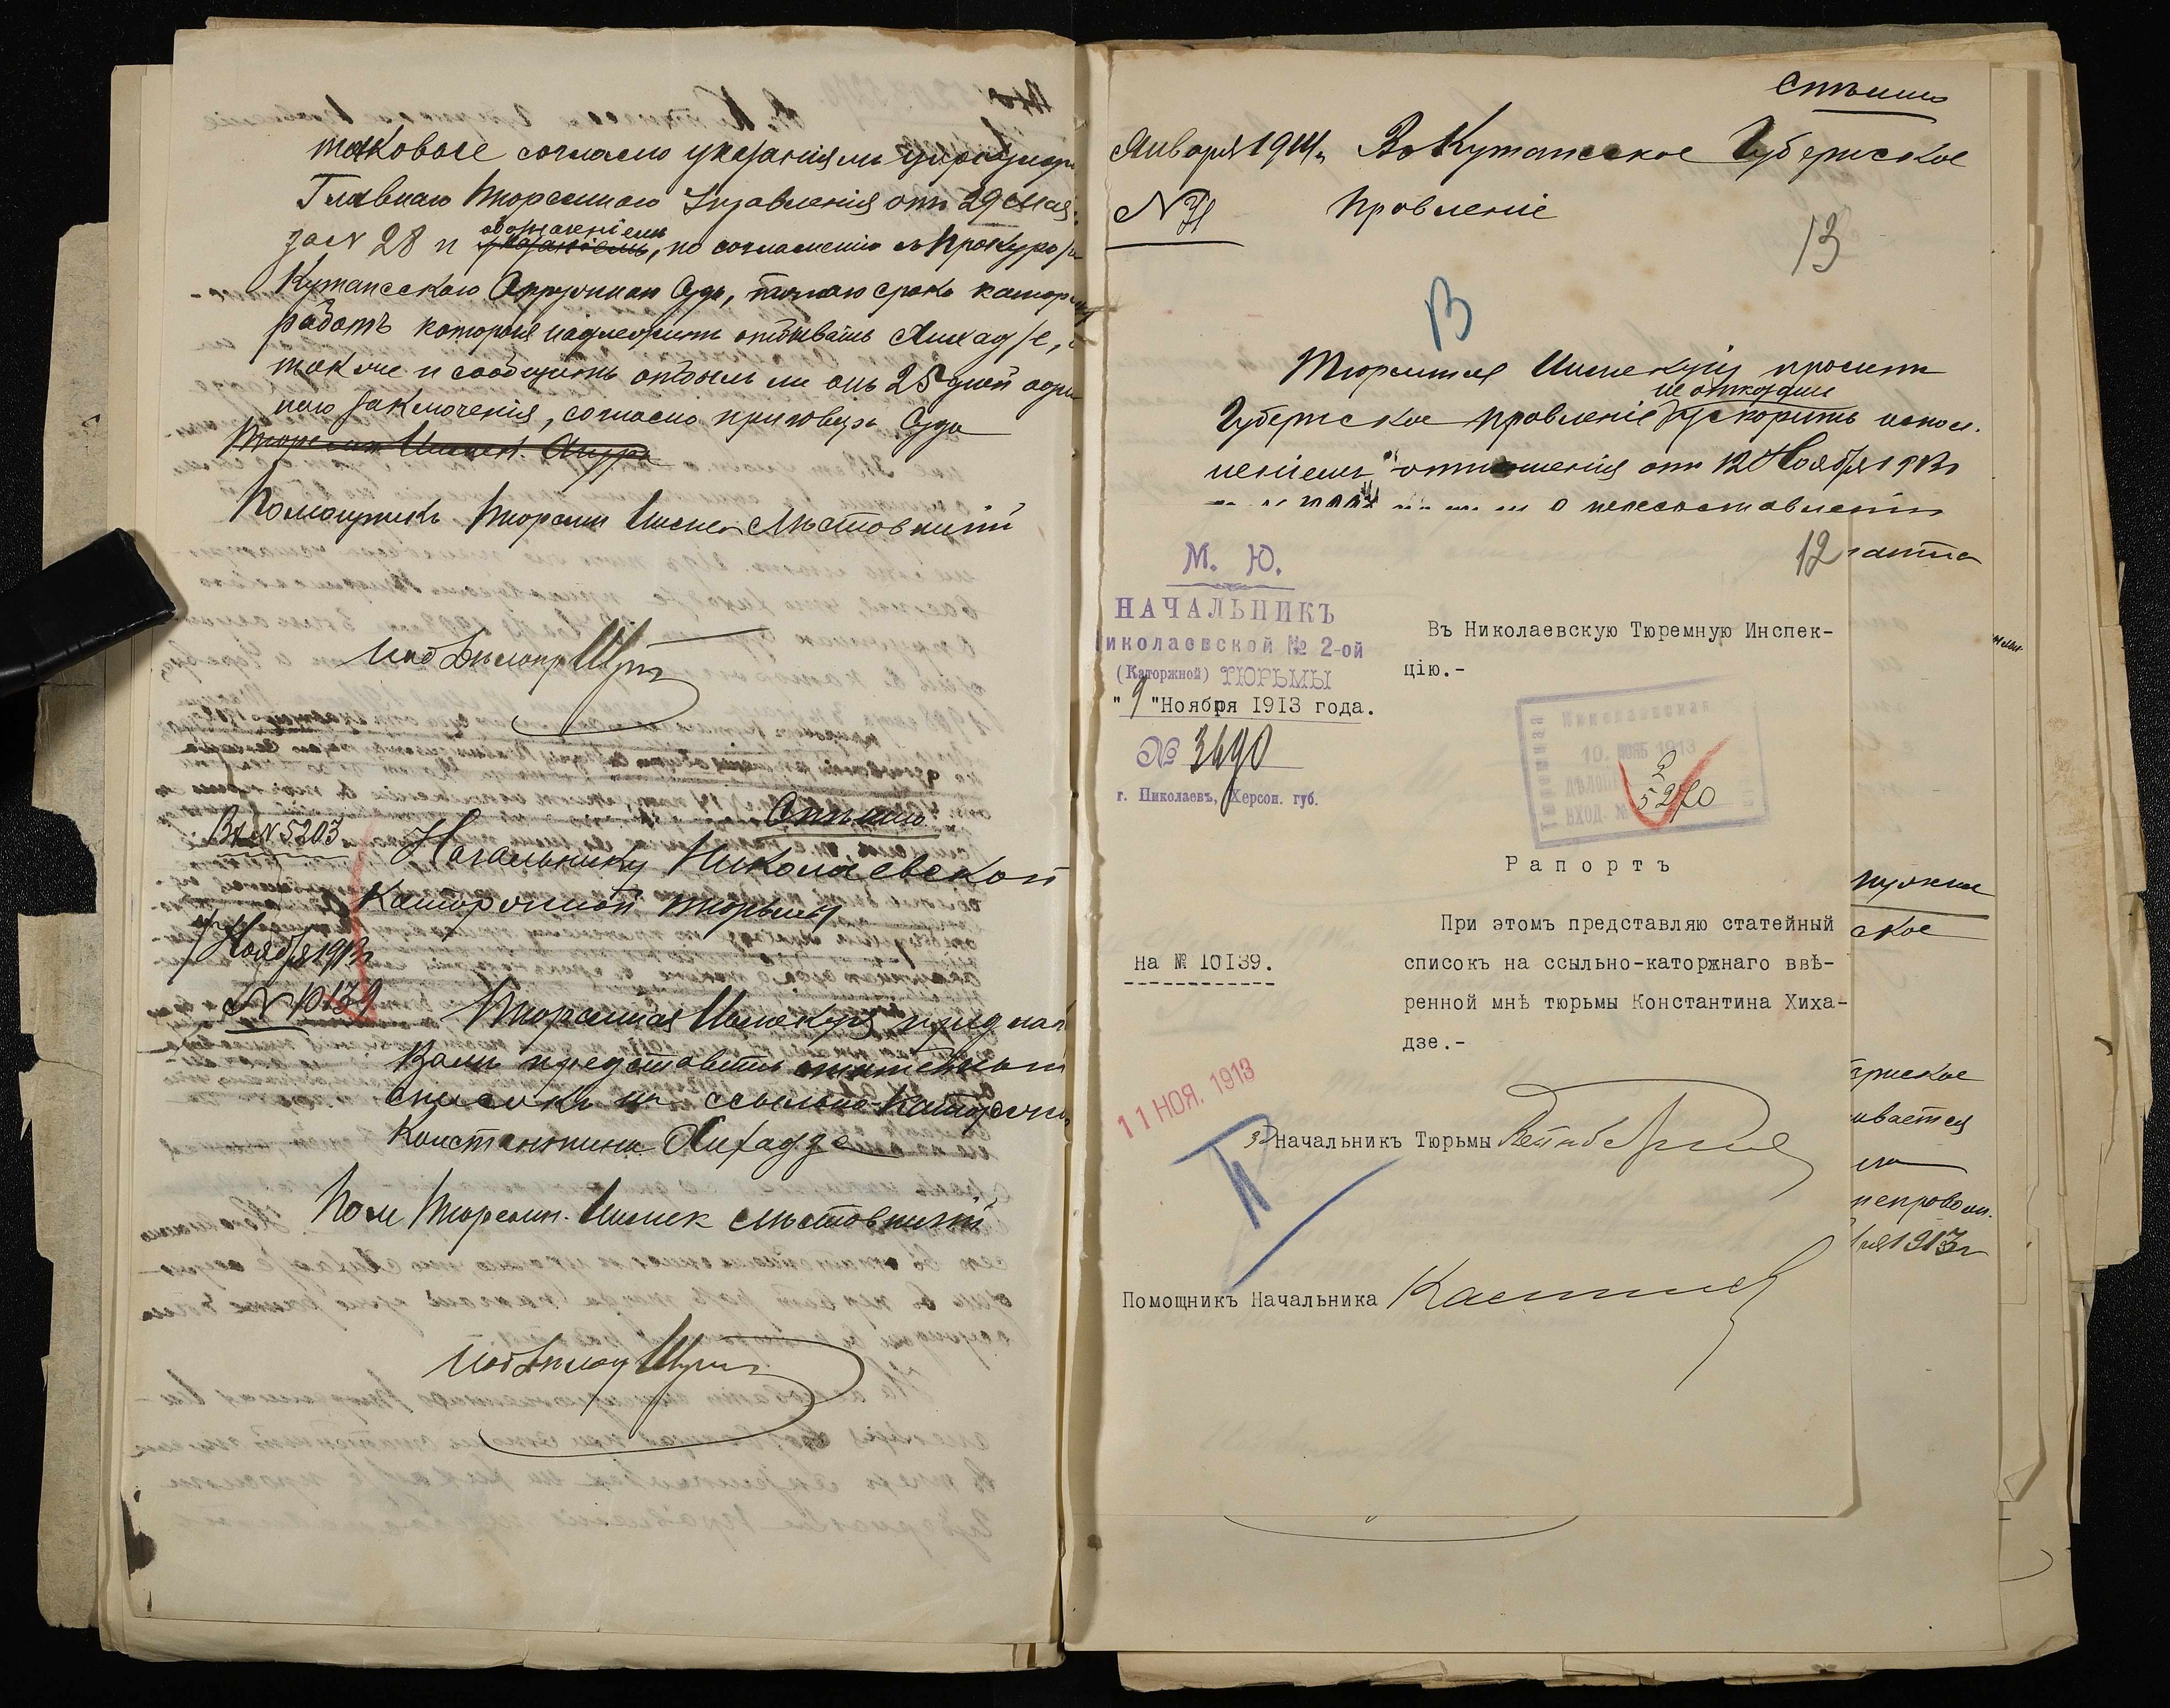 таковое согласно указаніямъ циркуляра
Главнаго Тюремнаго Управленія отъ 29 Мая
за № 28 и обозначеніемъ, по соглашенію съ Прокуро
Кутаисскаго Окружнаго Суда, точнаго срока каторж
работъ которыя надлежитъ отбывать Хихадзе, а
также и сообщить отбылъ ли онъ 25 дней
заключенія, согласно приговора Суда
Помощникъ Тюремн Инспек Мѣстовскій
Спѣшно
Вх № 5203 Начальнику Николаевской
Каторжной тюрьмы
Ноября 1913 г
№ 10139 Тюремная Инспекція предлаг
Вамъ представить статейный
списокъ на ссыльно-каторжн
Константина Хихадзе
Пом Тюремн. Инспек Мѣстовскій
Спѣшно
Января 1914 г. Въ Кутаисское Губернское
№ Правленіе
13
В
Тюремная Инспекція проситъ
не отказать
Губернское Правленіе ускорить испол.
неніемъ отношенія отъ 12 Ноября 1913 г
12
М. Ю.
НАЧАЛЬНИКЪ
иколаевской № 2-ой
(Каторжной) ТЮРЬМЫ
"9"Ноября 1913 года.
№ 3690
г. Николаевъ, Херсон. губ.
Въ Николаевскую Тюремную Инспек-
цію.-
Николаевская
10. НОЯБ 1913
ВХОД. № 5270
Рапортъ
на № 10139.
При этомъ представляю статейный
списокъ на ссыльно-каторжнаго ввѣ-
ренной мнѣ тюрьмы Константина Хиха-
дзе.-
11 НОЯ. 1913
Начальникъ Тюрьмы
Помощникъ Начальника
ское
рнское
ивается
препровожд.
1913 г